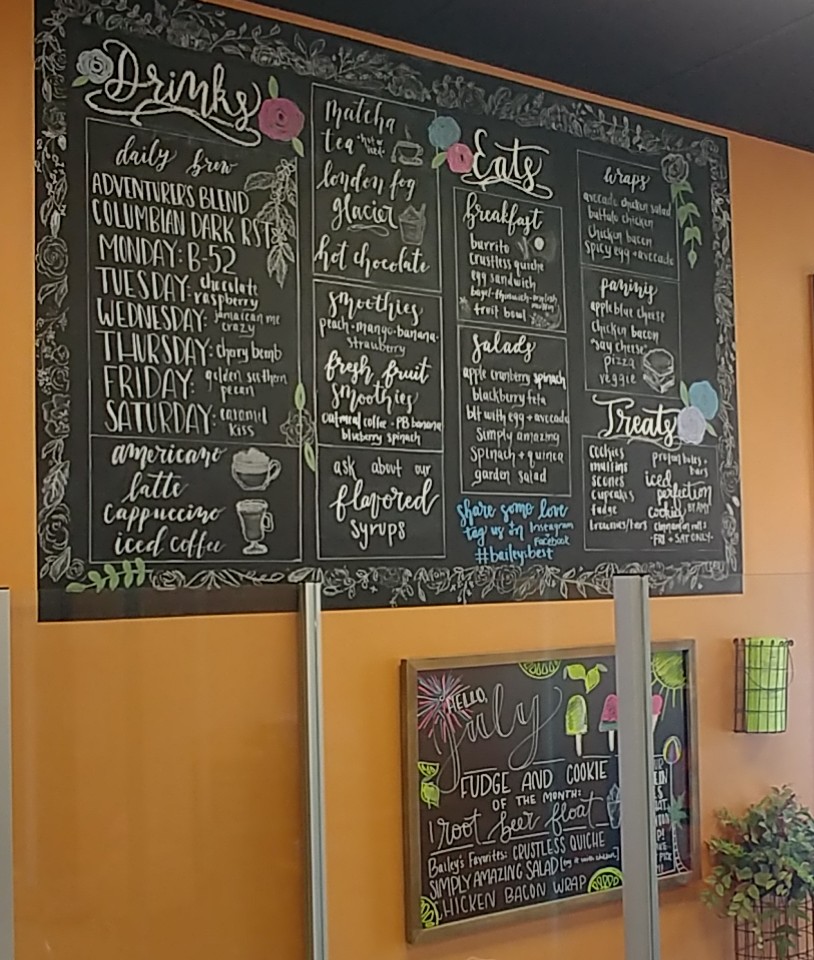 Drinks
daily brew
ADVENTURERS BLEND
COLUMBIAN DARK RST
MONDAY: B-52
TUESDAY: chocolate
raspberry
WEDNESDAY: jamaican me
crazy
THURSDAY: cherry bomb
FRIDAY: golden southern
pecan
SATURDAY: caramel
kiss
americano
latte
cappuccino
iced coffee
matcha
tea hot or
iced
london fog
glacier
hot chocolate
smoothies
peach-mango-banana-
strawberry
fresh fruit
smoothies
oatmeal coffee - PB banana
blueberry spinach
ask about our
flavored
syrups
Eats
breakfast
burrito
crustless quiche
egg sandwich
bagel - thinwich - english
muffin
fruit bowl
salads
apple cranberry spinach
blackberry feta
blt with egg + avocado
simply amazing
spinach + quinoa
garden salad
share some love
tag us in Instagram
Facebook
#baileysbest
wraps
avocado chicken salad
buffalo chicken
chicken bacon
spicy egg + avocado
paninis
apple blue cheese
chicken bacon
"say cheese"
pizza
veggie
Treats
cookies
muffins
scones
cupcakes
fudge
brownies/bars
protein bites
bars
iced
perfection
cookies BY AMY
cinnamon rolls
-FRI + SAT ONLY-
HELLO,
July
FUDGE AND COOKIE
OF THE MONTH:
root beer float
Bailey's Favorites: CRUSTLESS QUICHE
SIMPLY AMAZING SALAD [try it with chicken]
CHICKEN BACON WRAP